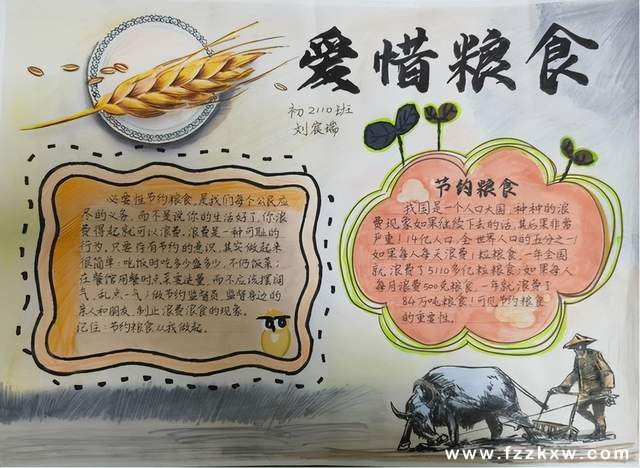 爱惜粮食
初2110班
刘宸瑞
必要性节约粮食,是我们每个公民应
尽的义务,而不是说你的生活好了,你浪
费得起就可以浪费。浪费是一种可耻的
行为。只要存有节约的意识,其实做起来
很简单:吃饭时吃多少盛多少,不仍饭菜;
在餐馆用餐时点菜要适量,而不应该摆阔
气,乱点一气;做节约监督员,监督身边的
亲人和朋友,制止浪费浪食的现象。
记住:节约粮食从我做起。
节约粮食
我国是一个人口大国,种种的浪
费现象如果继续下去的话,其后果非常
严重!14亿人口,全世界人口的五分之一!
如果每人每天浪费1粒粮食,一年全国
就浪费了5110多亿粒粮食;如果每人
每月浪费500克粮食,一年就浪费了
84万吨粮食!可见节约粮食
的重要性。
www.fzzkxw.com